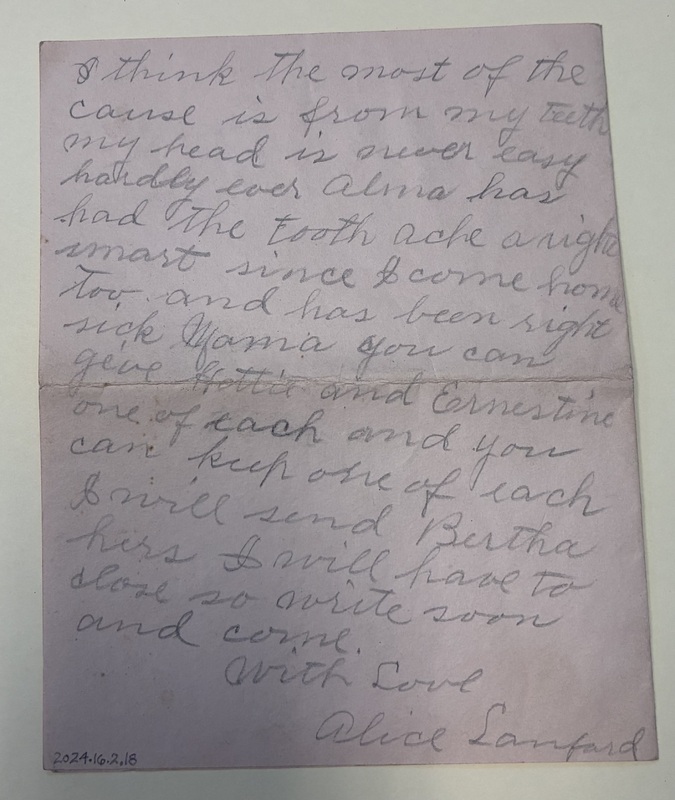 I think the most of the
cause is from my teeth
my head is never easy
hardly ever Alma has
had the tooth ache a right
smart since I come home
too. and has been right
sick Mama you can
give Hottie and Ernestine
one of each and you
can keep one of each
I will send Bertha
hers I will have to
close so write soon
and come.
With Love
Alice Lanford
2024.16.2.18